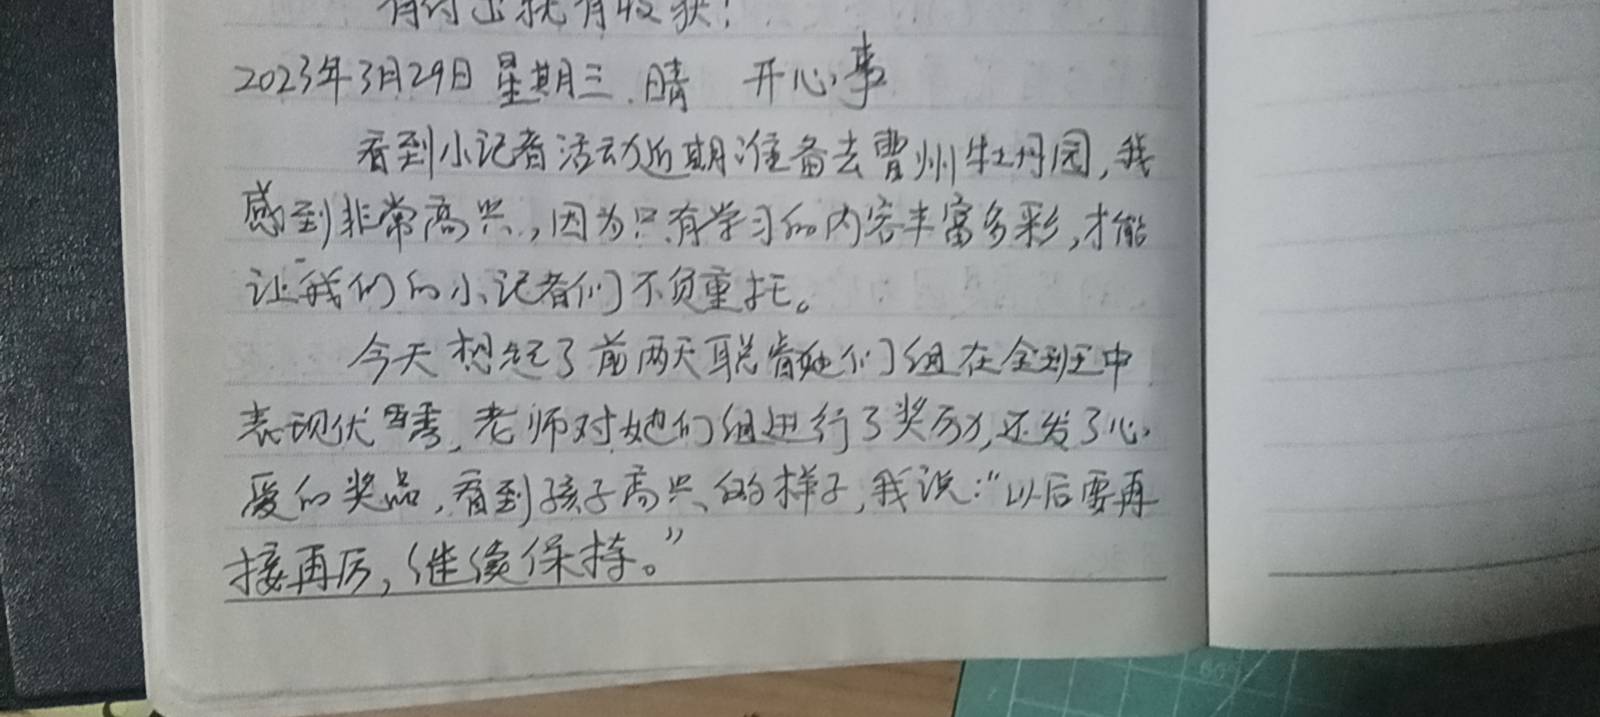 有付出就有收获!
2023年3月29日 星期三 晴 开心事
看到小记者活动近期准备去曹州牡丹园,我
感到非常高兴,因为只有学习的内容丰富多彩,才能
让我们的小记者们不负重托。
今天想起了前两天聪睿她们组在全班中
表现优秀,老师对她们组进行了奖励,还发了心
爱的奖品,看到孩子高兴的样子,我说:“以后要再
接再厉,继续保持。”